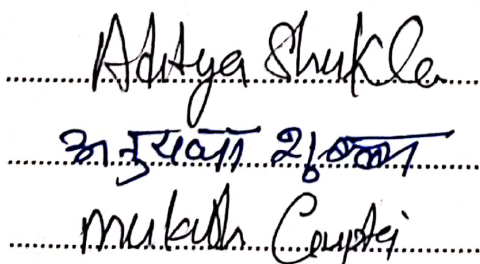 Aditya Shukla
अनुपमा शुक्ला
Mukesh Gupta